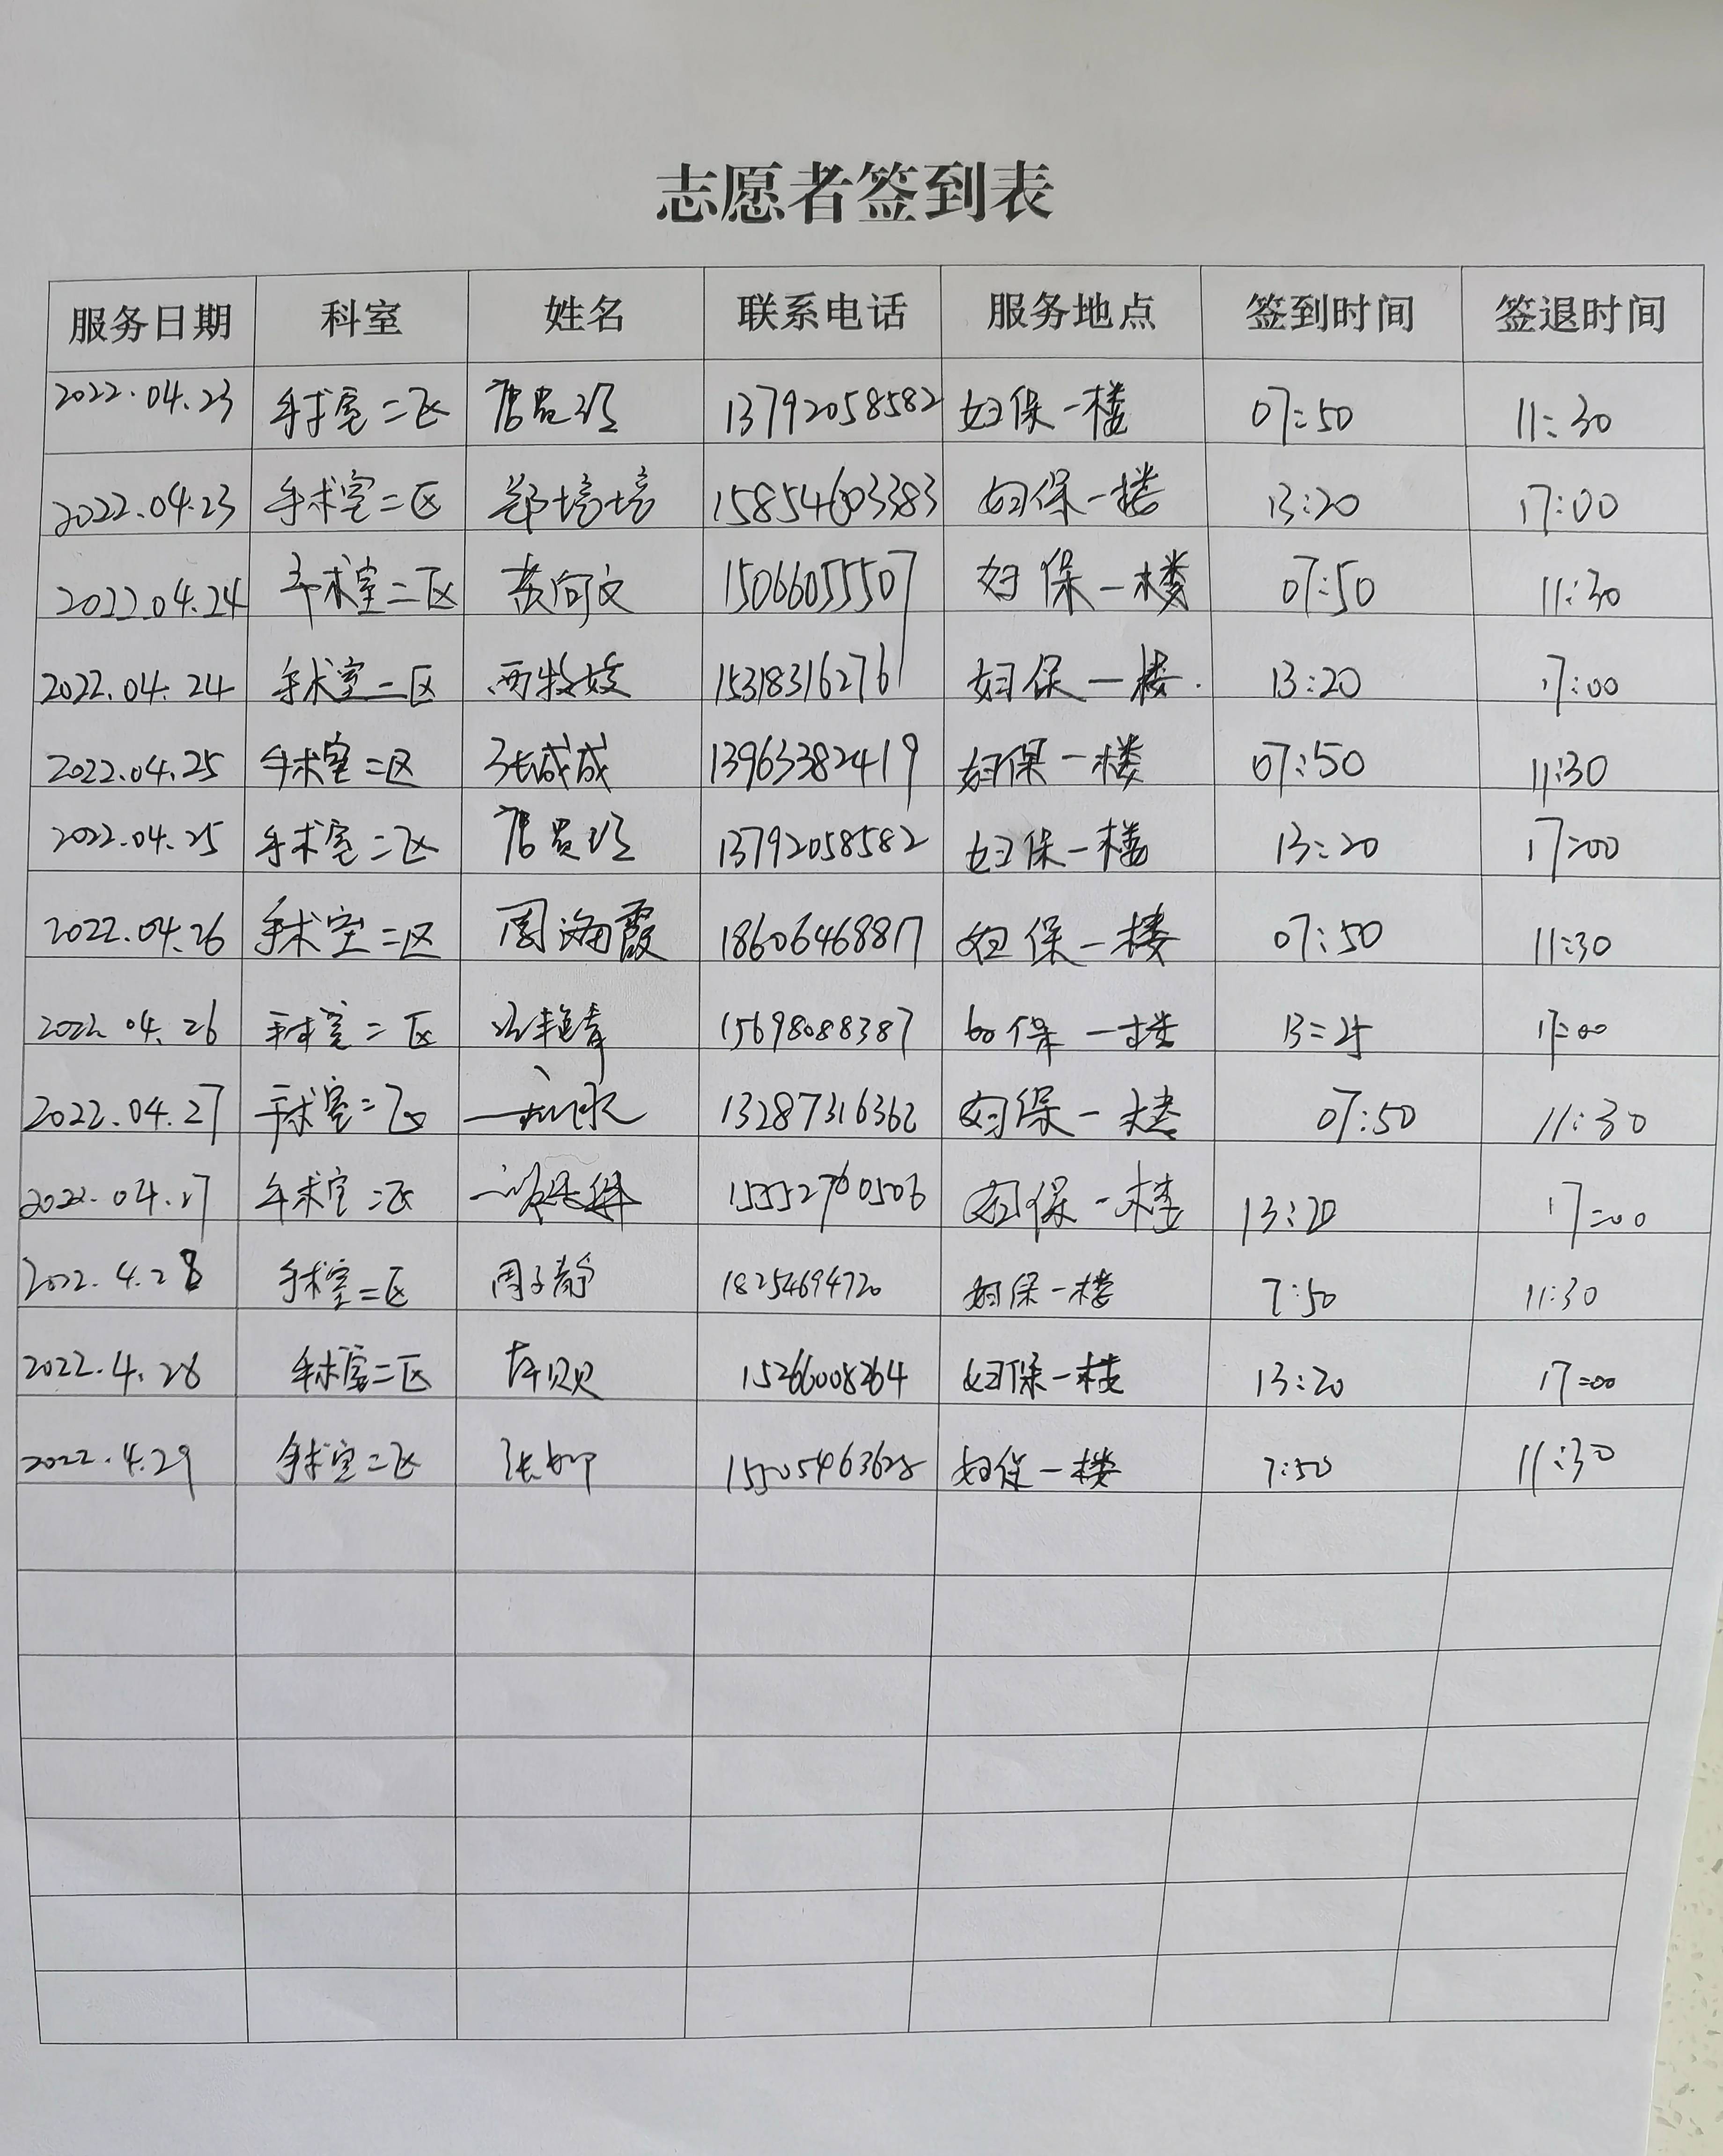 志愿者签到表
服务日期 科室 姓名 联系电话 服务地点 签到时间 签退时间
2022.04.23 手术室二区 13792058582 妇保一楼 07:50 11:30
2022.04.23 手术室二区 郑培培 15854603383 妇保一楼 13:20 17:00
2022.04.24 手术室二区 黄向文 15066055507 妇保一楼 07:50 11:30
2022.04.24 手术室二区 15318316276 妇保一楼. 13:20 17:00
2022.04.25 手术室二区 张成成 13963382419 妇保一楼 07:50 11:30
2022.04.25 手术室二区 13792058582 妇保一楼 13:20 17:00
2022.04.26 手术室二区 周海霞 18606468817 妇保一楼 07:50 11:30
2022.04.26 手术室二区 15698088387 妇保一楼 13:25 17:00
2022.04.27 手术室二区 13287316362 妇保一楼 07:50 11:30
2022.04.27 手术室二区 妇保一楼 13:20 17:00
2022.4.28 手术室二区 周子静 18254694720 妇保一楼 7:50 11:30
2022.4.28 手术室二区 15266008264 妇保一楼 13:20 17:00
2022.4.29 手术室二区 妇保一楼 7:50 11:30